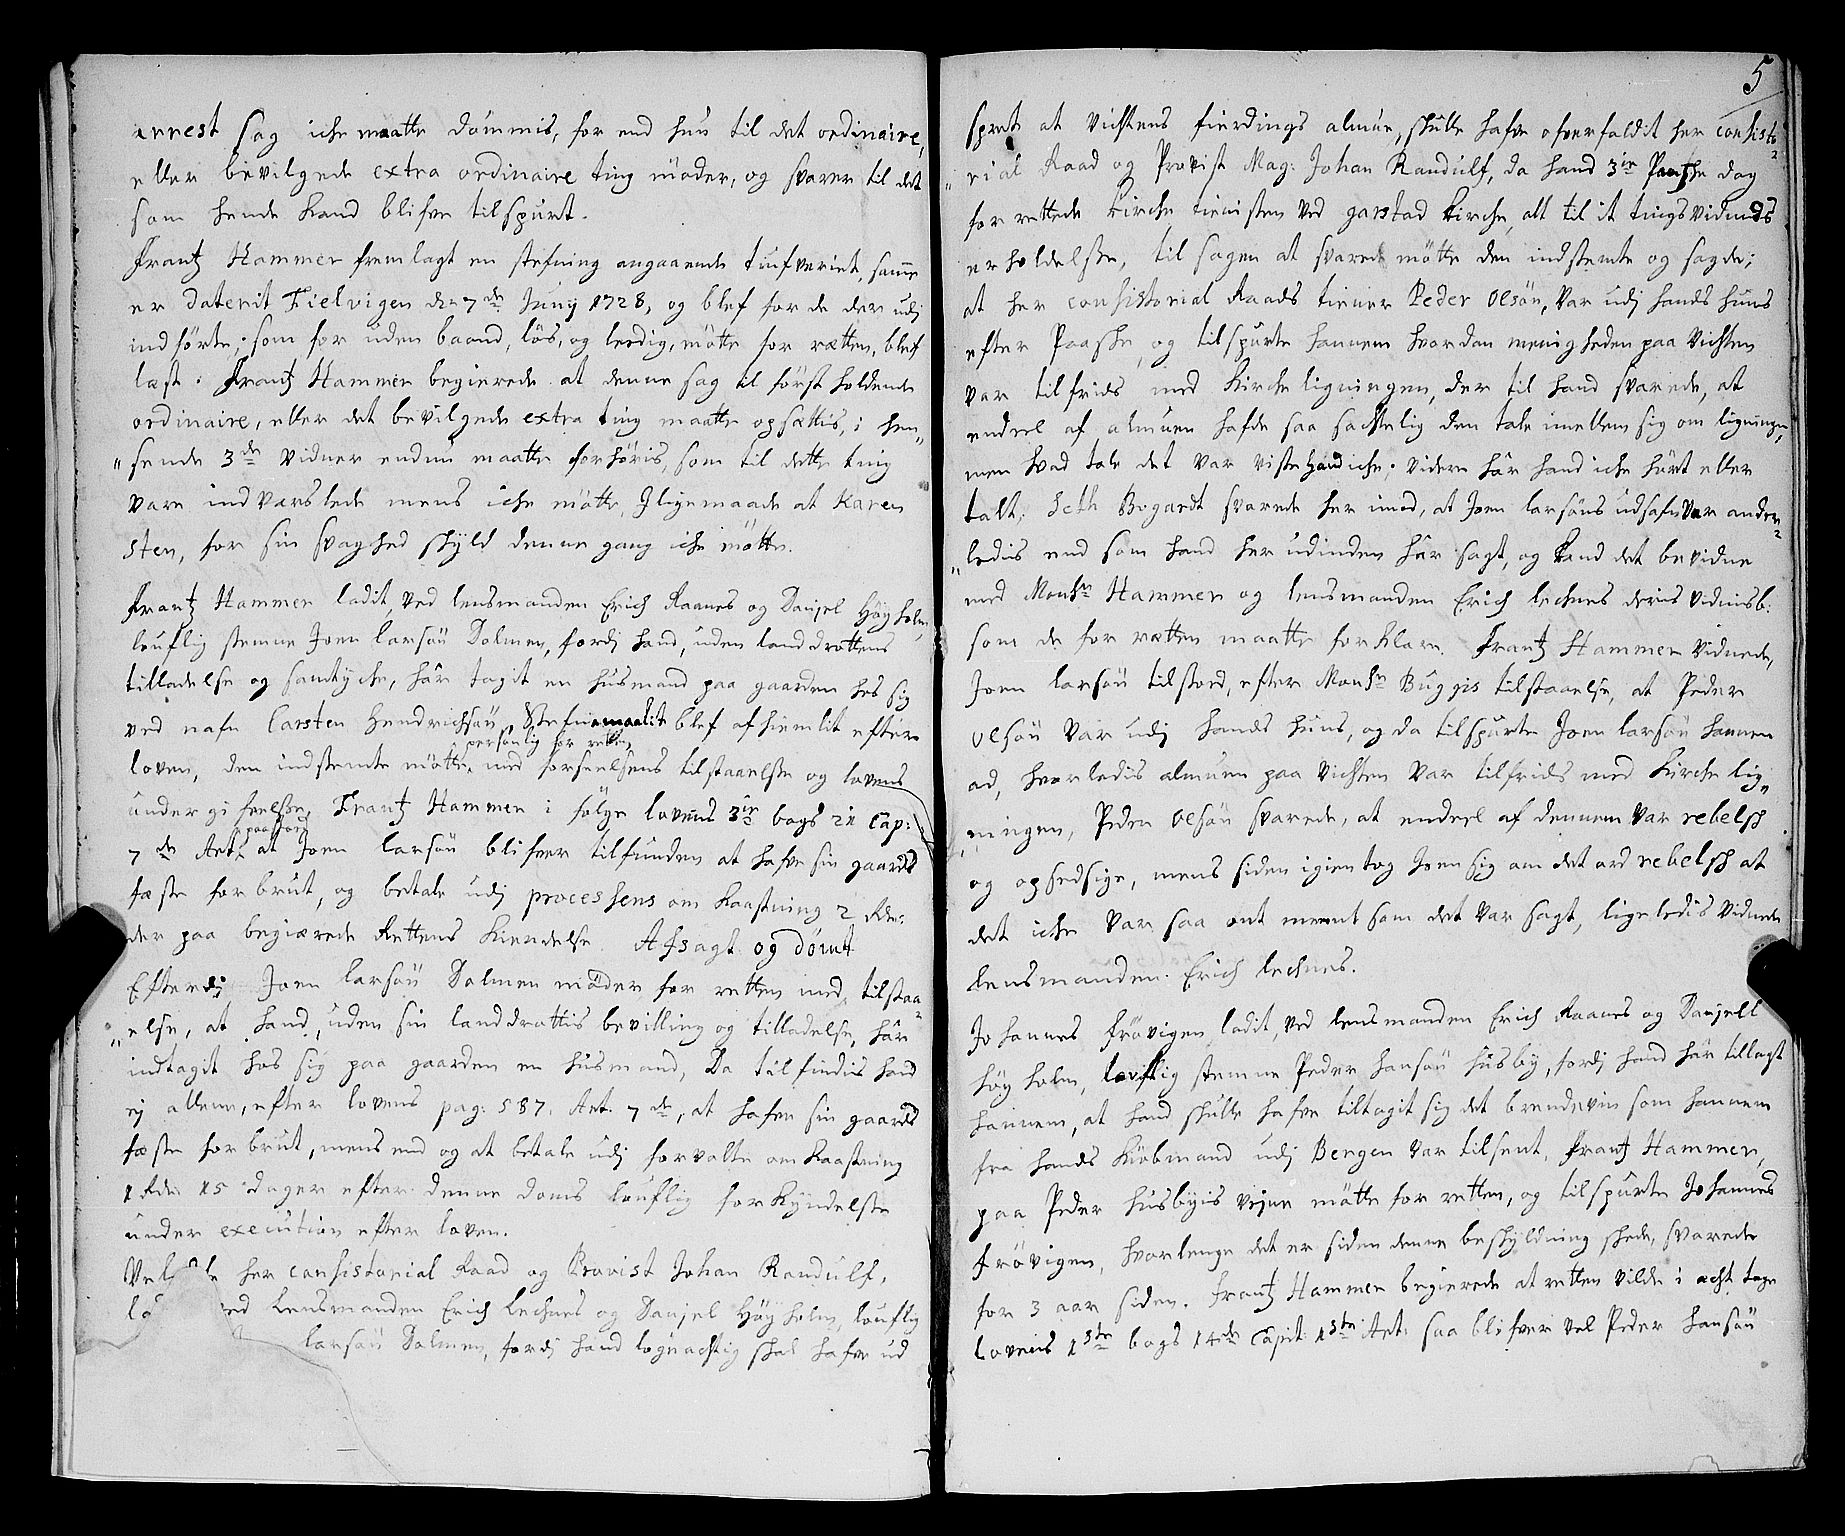 arrest sag iche maatte dömmis, for end hun til det ordinaire,
eller bevilgede extra ordinaire ting möder, og svarer til det
som hende Kand blifve tilspurt.
Frantz Hammer fremlagt en stefning angaaende tiufveriet, samme
er daterit Tielvigen d. 7de Juny 1728, og blef for de der udj
indförte, som for uden baand, lös, og ledig, mötte for rætten, blef
læst. Frantz Hammer begierede at denne sag til först holdende
ordinaire, eller det bevilgede extra ting maatte opsættis, i hen„
„seende 3de vidner endnu maatte forhöris, som til dette ting
vare indvarslede mens iche mötte, Jligemaade at Karen
sten, for sin svaghed skyld denne gang iche mötte.
Frantz Hammer ladit, ved lensmanden Erich Raanes og Danjel Höyholm,
louflig stemne Joen larsön Dolmen, fordj hand, uden landdrottens
tilladelse og samtyche, hâr tagit en husmand paa gaarden hos sig
ved nafn Carsten Hendrichsön, Stefnemaalit blef afhiemlit efter
personlig for retten
loven, den indstemte mötte, med forseelsens tilstaaelsse og lovens
undergifvelsse, Frantz Hammer i fölge lovens 3die bogs 21 Cap:
paastod
7de Art. at Joen larsön blifver tilfunden at hafve sin gaards
fæste forbrut, og betale udj processens omKaastning 2 Rdr:
der paa begiærede Rettens Kiendelse. Afsagt og dömt
Efterdj Joen larsön Dolmen möder for retten med tilstaa
„else, at hand, uden sin landdrottis bevilling og tilladelse, hâr
indtagit hos sig paa gaarden en husmand, Da tilfindis hand
ej allene, efter lovens pag: 587. Art. 7de, at hafve sin gaards
fæste forbrut, mens end og at betale udj forvolte omKaastning
1 Rdr 15 dager efter denne doms louflig forKyndelsse
under execution efter loven.
her consistorial Raad og Provist Johan Randulf,
ved Lensmanden Erich Lechnes og Danjel Höyholm, louflig
larsön Dolmen, fordj hand lögnachtig skal hafve ud
5
spret at vichtens fierdings almue, skulle hafve ofverfaldit her consisto
„rial Raad og Provist Mag: Johan Randulf, da hand 3die Paaske dag
forrettede Kirche tienisten ved garstad Kirche, alt til it tingsvidnes
erholdelsse, til sagen at svare mötte den indstemte og sagde;
at her consistorial Raads tiener Peder Olsön, Var udj hands huus
efter Paaske, og tilspurte hannem hvordan menigheden paa vichten
var tilfrids med Kirche ligningen, der til hand svarede, at
endeel af almuen hafde saa sachtelig den tale imellem sig om ligningen,
men hvad tale det var viste hand iche; videre hâr hand iche hört eller
talt; Seth Bogardt svarede her imod, at Joen larsöns udsafn var ander
„ledis end som hand her udinden hâr sagt, og Kand det bevidne
med Monsr Hammer og lensmanden Erich lechnes deris vidnisb:
som de for rætten maatte forKlare. Frantz Hammer vidnede,
Joen larsön tilstod, efter Monsr Buggis tilstaaelse, at Peder
Olsön var udj hands huus, og da tilspurte Joen larsön hannem
ad, hvorledis almuen paa vichten var tilfrids med Kirche lig„
„ningen, Peder Olsön svarede, at endeel af dennem var rebelsch
og opsedsige, mens siden igientog Joen sig om det ord rebelsch at
det iche var saa ont meent som det var sagt, ligeledis vidnede
lensmanden Erich lechnes.
Johannes frövigen ladit, ved lensmanden Erich Raanes og Danjell
höyholm, lovflig stemne Peder hansön husby, fordj hand hâr tillagt
hannem, at hand skulle hafve tiltagit sig det brendevin som hannem
fra hands Kiöbmand udj Bergen var tilsent, Frantz Hammer,
paa Peder husbyis vejne mötte for retten, og tilspurte Johannes
frövigen, hvorlenge det er siden denne beskyldning skede, svarede
for 3 aar siden. Frantz Hammer begierede at retten vilde i acht tage
lovens 1ste bogs 14de Capit: 1ste Art. saa blifver vel Peder hansön